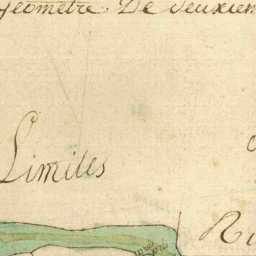 Geometre. De deuxiem
Limites
Ri